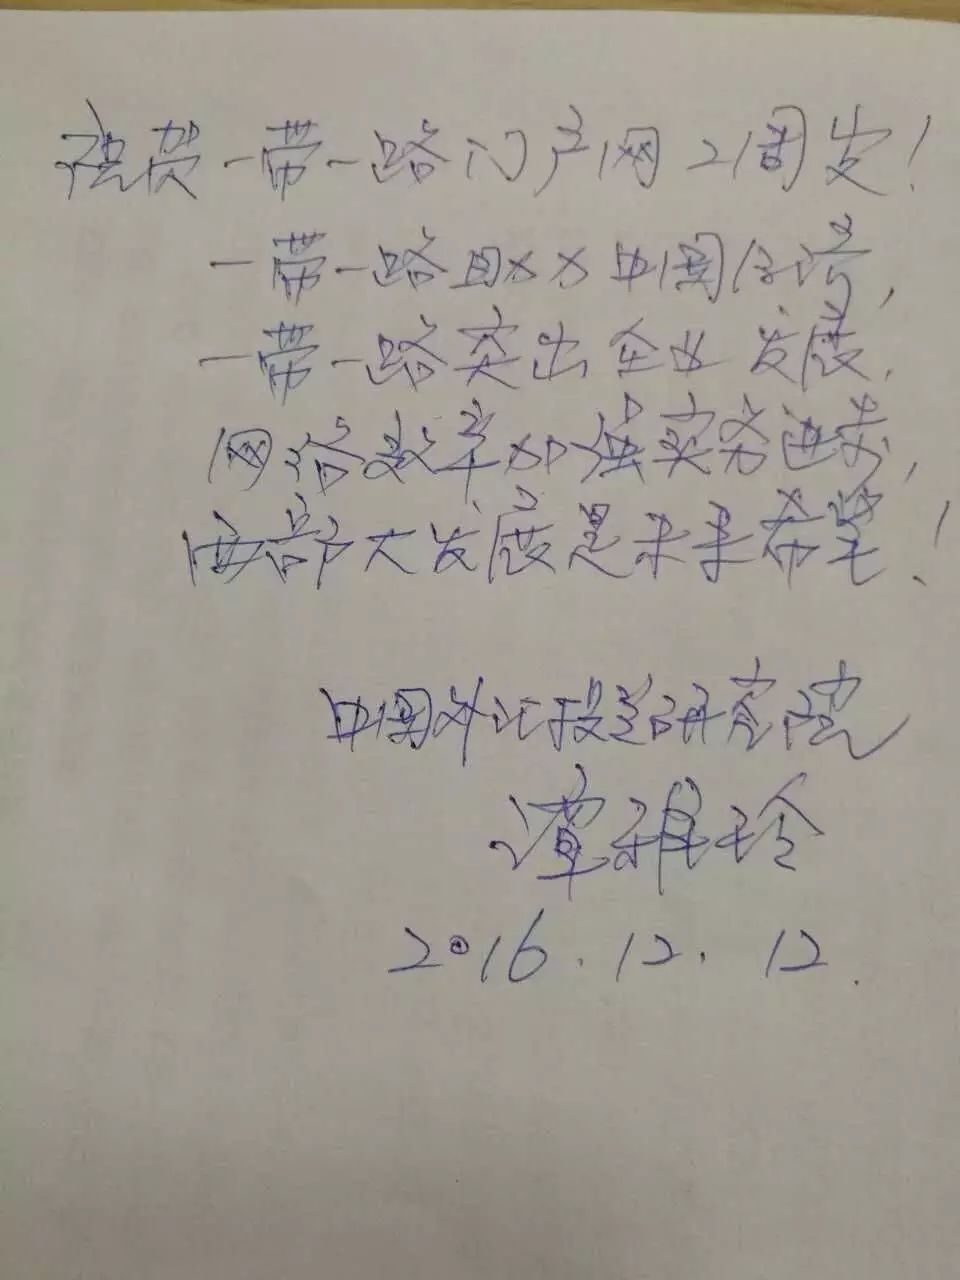 祝贺一带一路门户网2周岁!
一带一路助力中国经济,
一带一路突出企业发展,
网络效率加强实务进步,
西部大发展是未来希望!
中国外汇投资研究院
谭雅玲
2016.12.12.